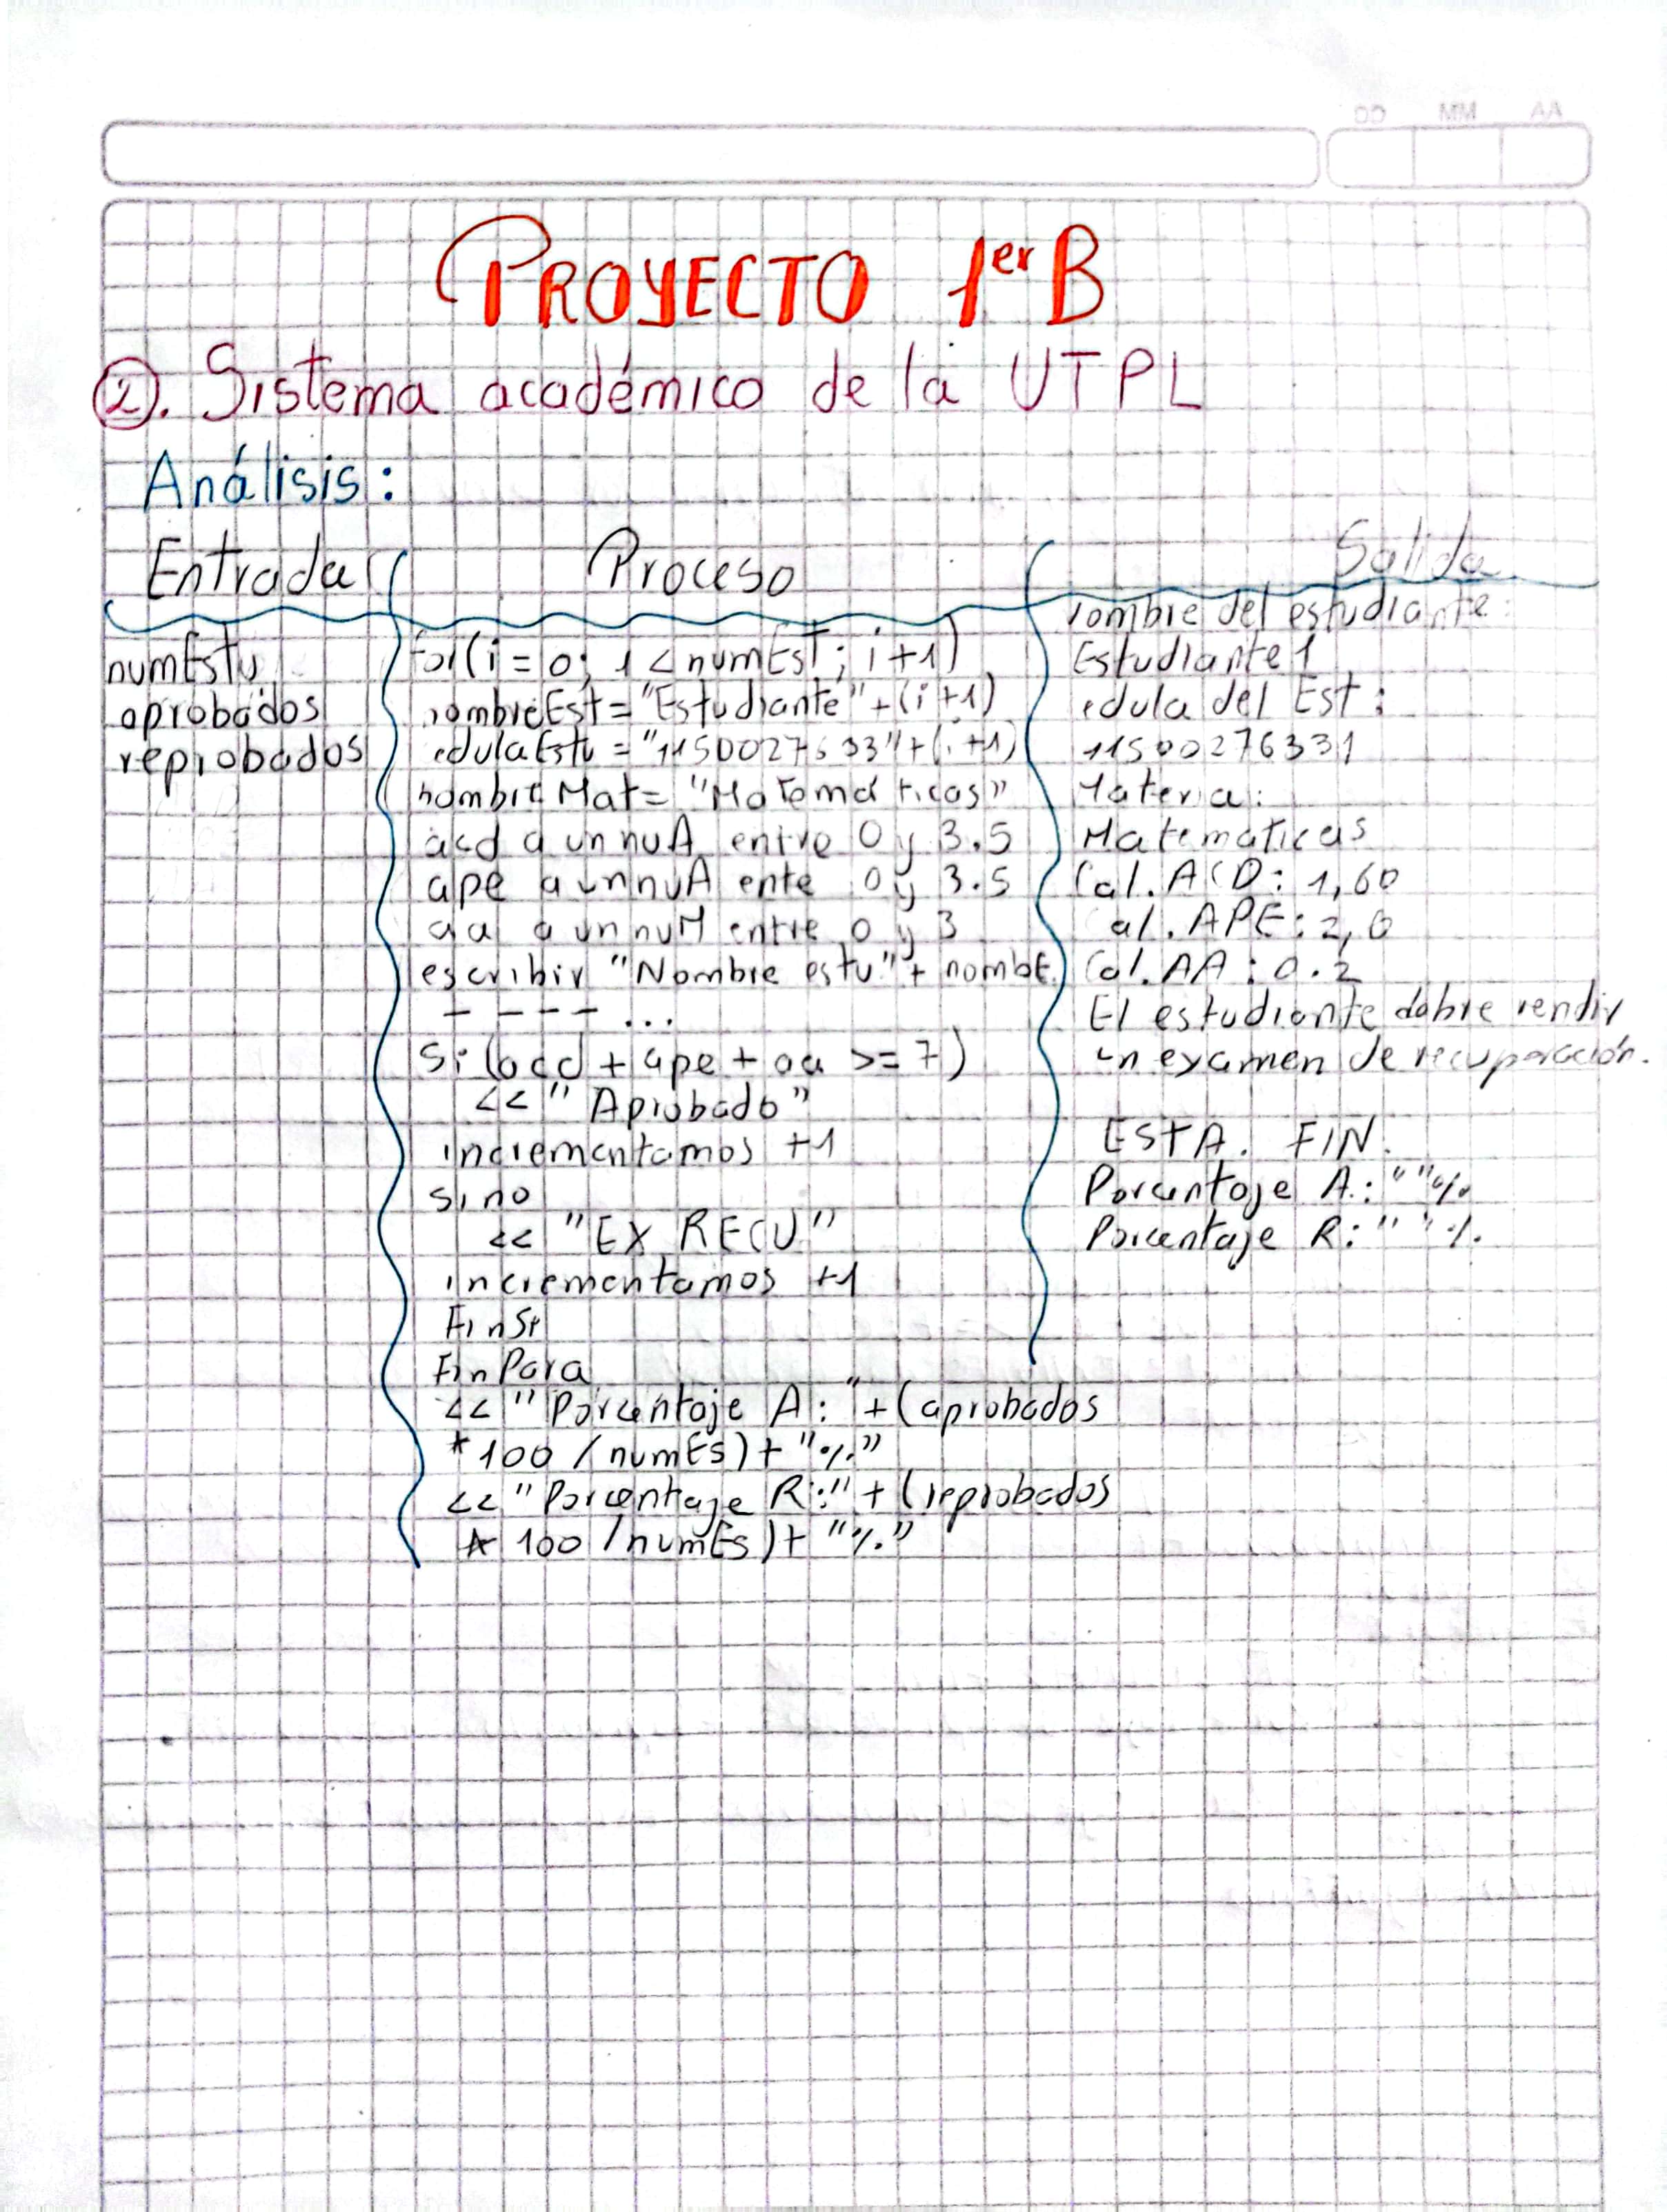 CC MM AA
PROYECTO 1er B
2. Sistema académico de la UTPL
Análisis:
Entrada
numEstu
aprobados
reprobados
Proceso
for(i = 0; 1 < numEst; i+1)
nombreEst = "Estudiante" + (i+1)
edulaEstu = "1150027633" + (i+1)
nombre Mat = "Matemáticas"
acd a un nuA entre 0 y 3.5
ape a un nuA ente 0 y 3.5
aa a un nuM entre 0 y 3
escribir "Nombre estu" + nombE.
- - - - - ...
Si (acd + ape + aa >= 7)
<< "Aprobado"
incrementamos +1
sino
<< "EX RECU"
incrementamos +1
FinSi
FinPara
<< "Porcentaje A: " + (aprobados
* 100 / numEs) + "%"
<< "Porcentaje R:" + (reprobados
* 100 / numEs) + "%"
Salida
nombre del estudiante:
Estudiante 1
edula del Est:
11500276331
Materia:
Matematicas
Cal. ACD: 1,60
al. APE: 2,0
Cal. AA: 0.2
El estudiante dabre rendir
un examen de recuperación.
ESTA. FIN.
Porcentaje A.: " "%
Porcentaje R: " " %